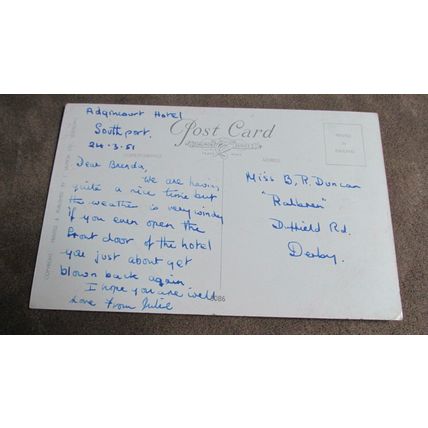 Adgincourt Hotel
Southport.
24.3.51
Post Card
CORRESPONDENCE
ADDRESS
PRINTED
IN
ENGLAND
Dear Brenda,
we are having
quite a nice time but
the weather is very windy
if you even open the
front door of the hotel
you just about get
blown back again
I hope you are well
Love from Julie
Miss B. R. Duncan
Duffield Rd.
Derby.